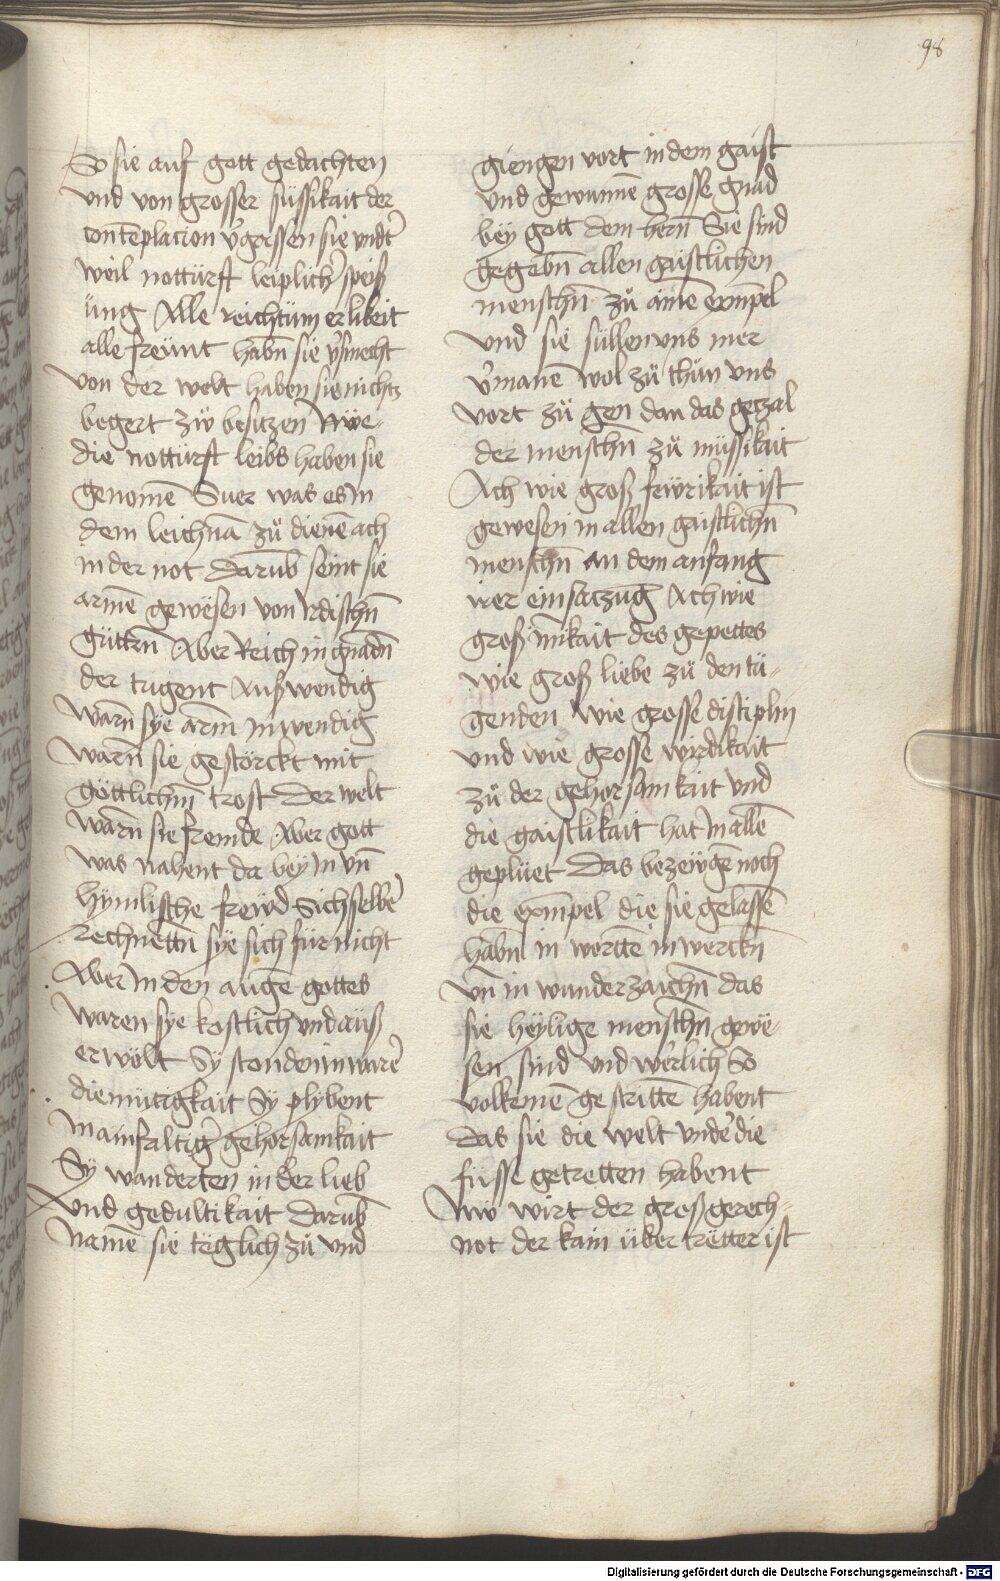 98
So sie auf gott gedachten
vnd von grosser süssikait der
contēplacion v̓gessen sie vndt̓
weil nottürft leiplich̓ speiß
üng Alle reichtüm erlikeit
alle freünt habn̄ sie v̓smecht
von der welt haben sie nichtz
begert zw̋ besitzen Nwe-
die nottürft leibs haben sie
genomē Suer was es in
dem leichnā zů dienē ach
in der not Darūb seint sie
armē gewësen von irdischn̄
güttrn̄ Aber Reich in gnadn̄
der tugent Außwendig
warn̄ sye arm inwendig
warn̄ sie gestörckt mit
göttlichm̄ trost Der welt
warn̄ sie fremde Aber gott
was nahent da bey in vn̄
hymlische frewd Sich selbe̓
rechnettn̄ sÿe sich für nicht
Aber in den augē gottes
waren sye kostlich vnd auß
erwölt Sy stonden in ware̓
diemütigkait Sy plybent
mainfaltig̓ gehorsamkait
Sy wanderten in der lieb
vnd gedultikait Darūb
namē sie teglich zů vnd
giengen vort in dem gaist
vnd gewunnē grosse gnad
bey gott dem hern̄ Sie sind
gegebn̄ allen gaistlichen
menschn̄ zů āinē exmpel
vnd sie süllen vns mer
v̓manē wol zů thün vns
vort zů gen dan das getzal
der menschn̄ zů müssikait
Ach wie groß fewrikait ist
gewesen in allen gaistlichn̄
menschn̄ an dem anfang
irer einsaczūg Ach wie
groß īnikait des gepettes
wie groß liebe zů den tü-
genden wie grosse disciplin
vnd wie grosse wirdikait
zů der gehorsamkait vnd
die gaistlikait hat in allē
geplüet Das bezewgē noch
die exmpel die sie gelassē
habn̄ in wortē in werckn̄
vn̄ in wunderzaichn̄ das
sie heÿlige menschn̄ gewë-
sen sind vnd werlich So
volkemē gestrittē habent
Das sie die welt vnde̓ die
füsse getretten habent
Nw̋ wirt der groß gerech-
not der kain übertretter ist
Digitalisierung gefördert durch die Deutsche Forschungsgemeinschaft - DFG